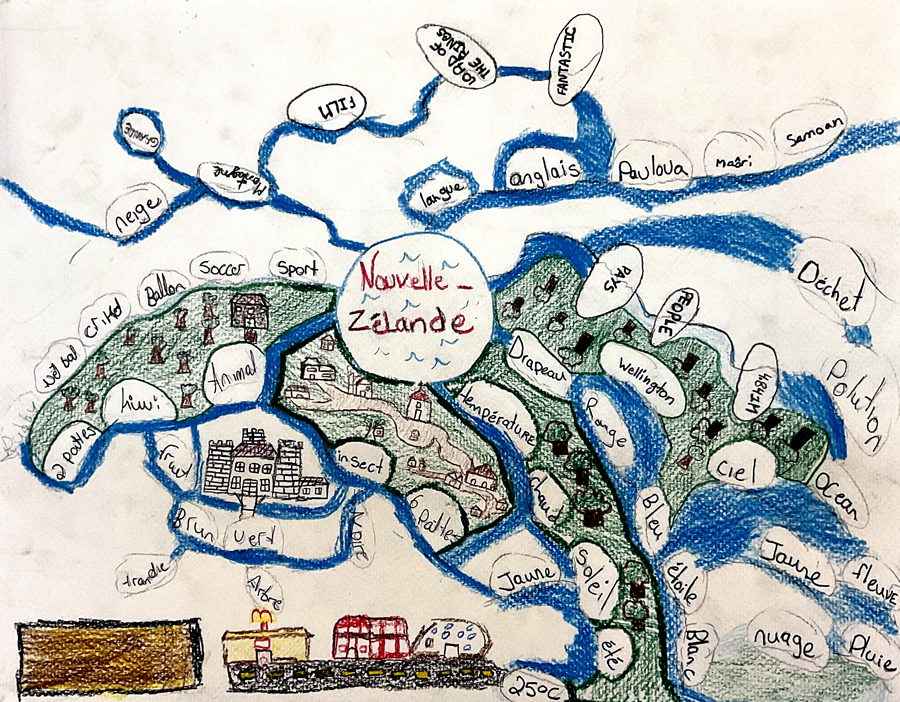 FANTASTIC
LORD OF
THE RINGS
FILM
GRANDE
Montagne
neige
langue
anglais
Pavlova
maōri
Samoan
Nouvelle-
Zélande
Sport
Soccer
Ballon
Animal
kiwi
2 pattes
fruit
Brun
Vert
Arbre
insect
6 pattes
Drapeau
température
chaud
Soléil
Jaune
été
25°C
PAYS
PEOPLE
Wellington
Rouge
Bleu
étoile
Blanc
ciel
Déchet
Polution
Océan
Jaune
fleuve
nuage
Pluie